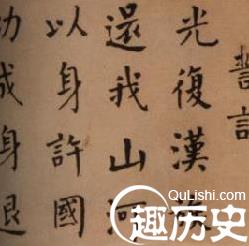 誓詞
光復漢族
還我山河
以身許國
功成身退
QuLishi.com
趣历史